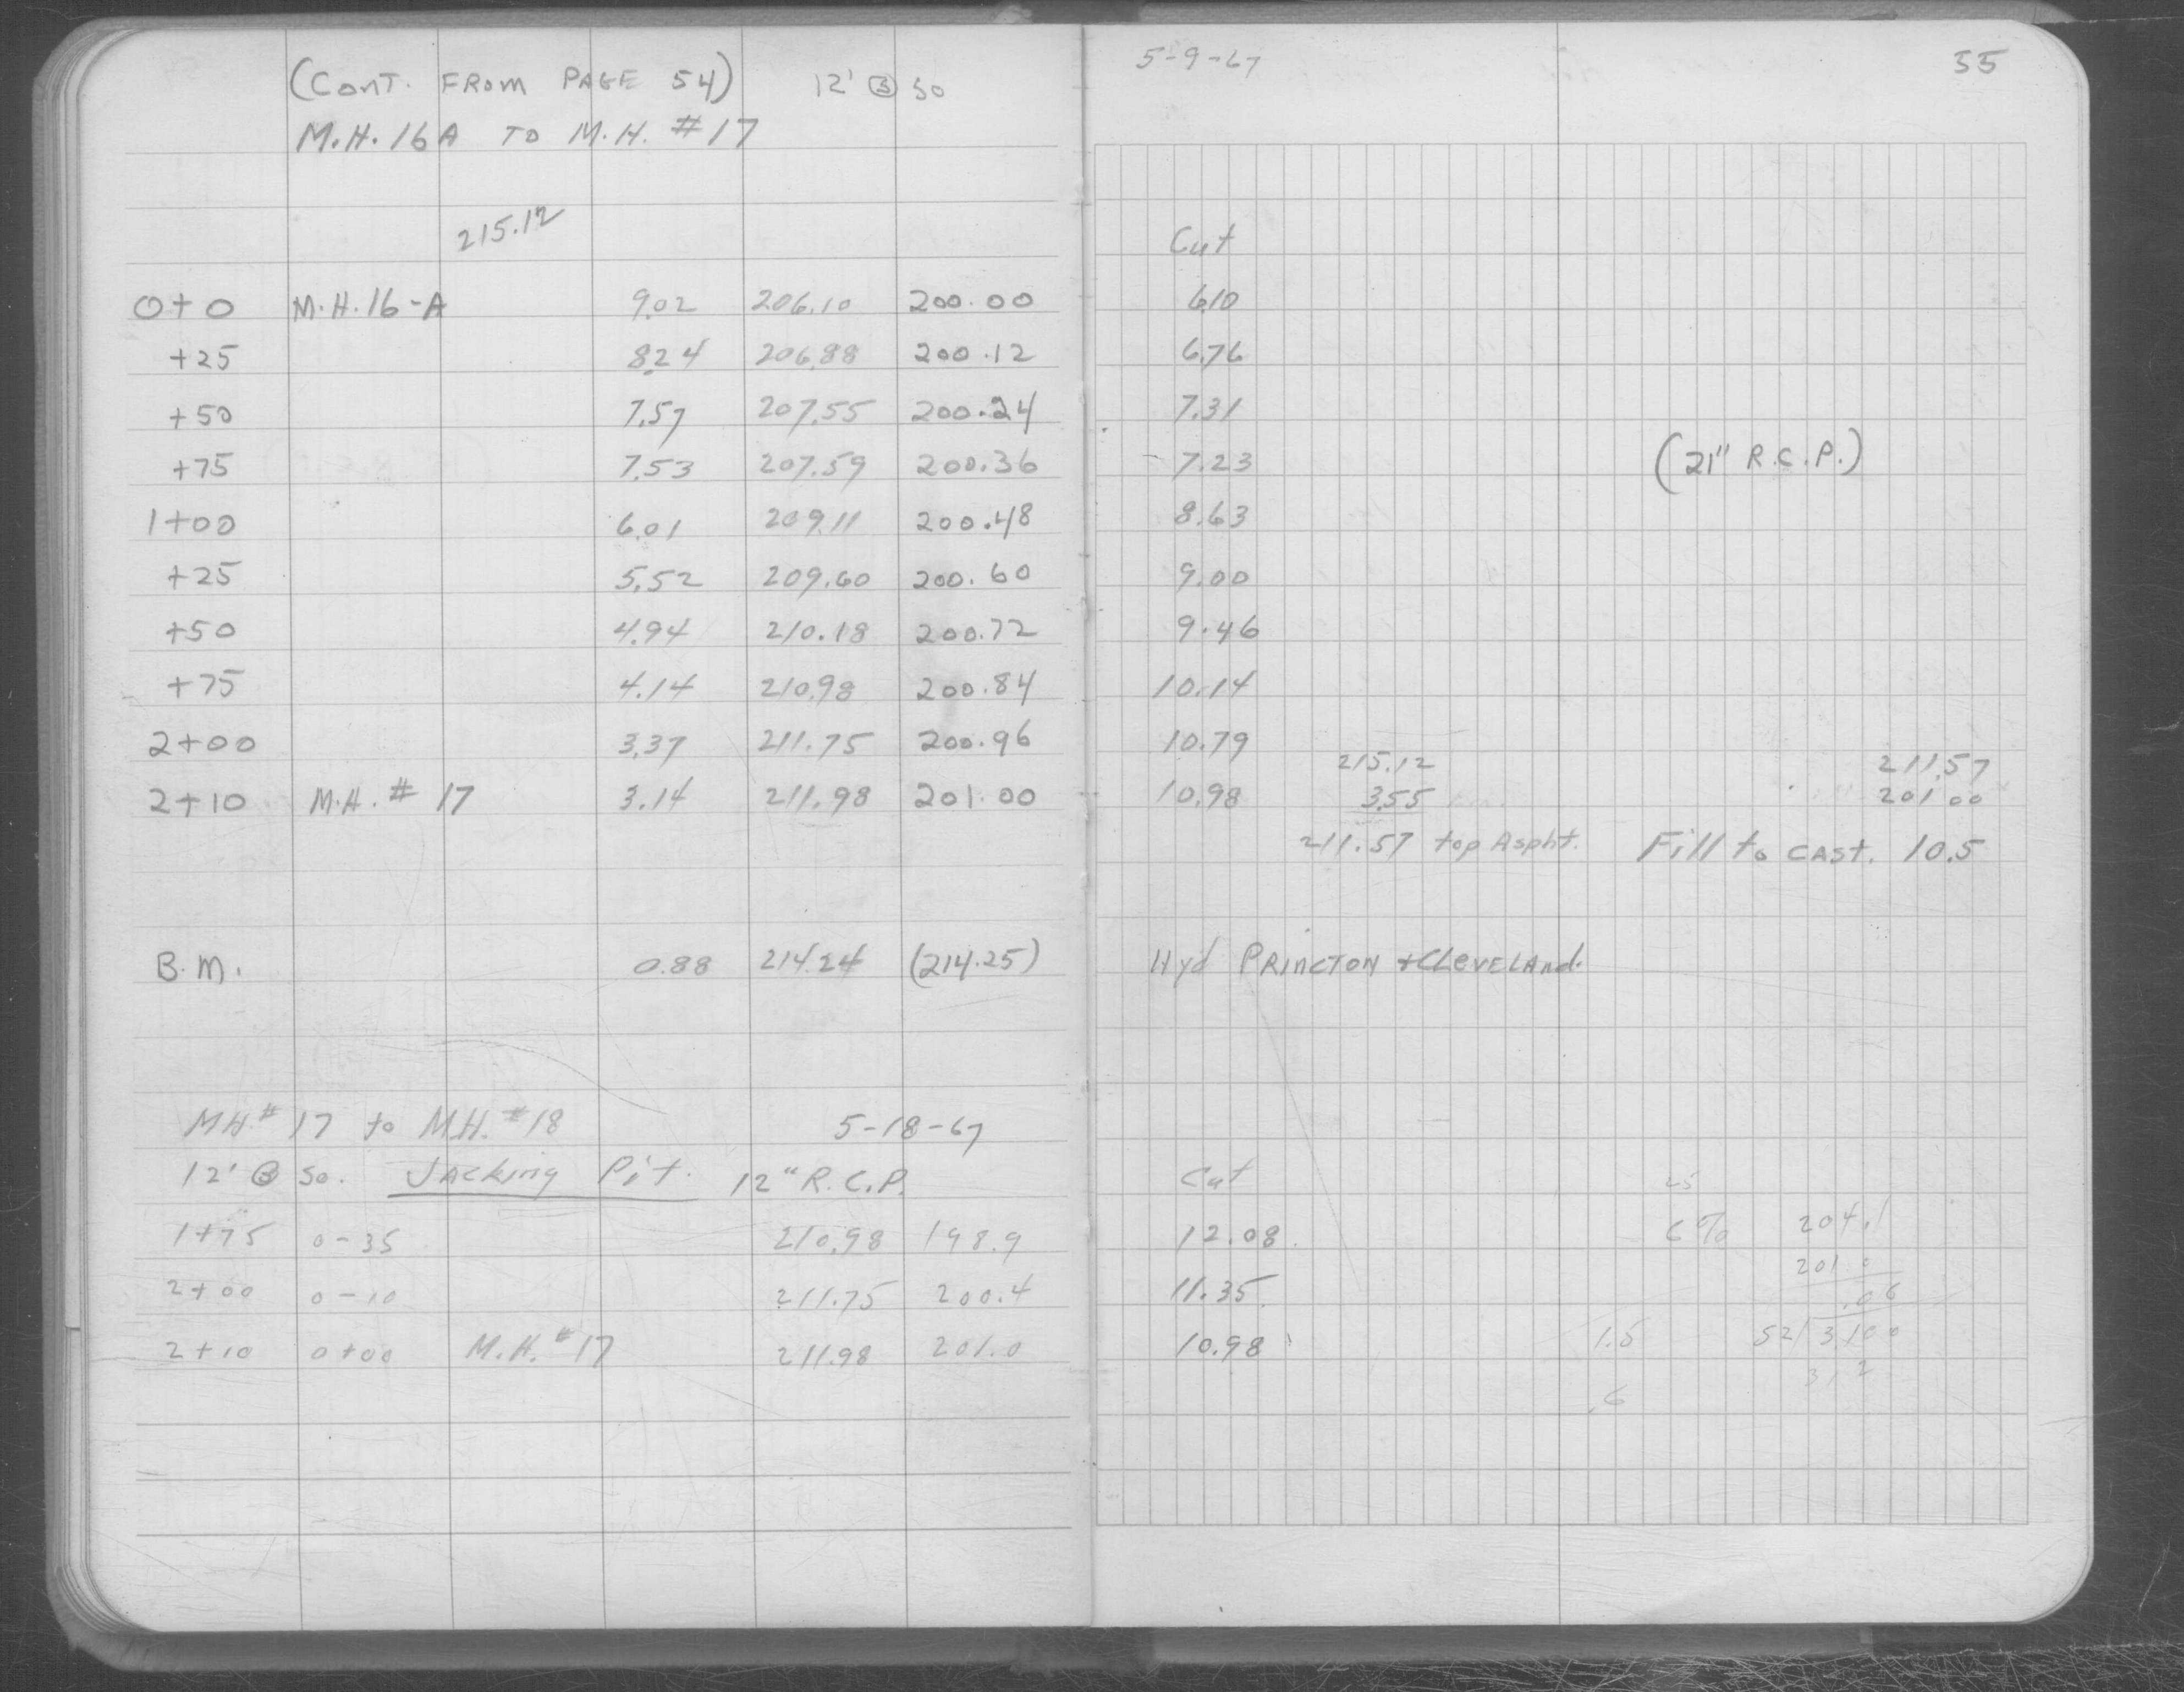 (CONT. FROM PAGE 54) 12' Ⓑ SO
M.H. 16A TO M.H. #17
215.12
0+0 M.H. 16-A 9.02 206.10 200.00
+25 8.24 206.88 200.12
+50 7.57 207.55 200.24
+75 7.53 207.59 200.36
1+00 6.01 209.11 200.48
+25 5.52 209.60 200.60
+50 4.94 210.18 200.72
+75 4.14 210.98 200.84
2+00 3.37 211.75 200.96
2+10 M.H. # 17 3.14 211.98 201.00
B.M. 0.88 214.24 (214.25)
MH # 17 to M.H. #18 5-18-67
12' Ⓑ So. Jacking Pit. 12" R.C.P.
1+75 0-35 210.98 198.9
2+00 0-10 211.75 200.4
2+10 0+00 M.H. #17 211.98 201.0
5-9-67 55
Cut
6.10
6.76
7.31
7.23 (21" R.C.P.)
8.63
9.00
9.46
10.14
10.79
215.12 211.57
10.98 3.55 201.00
211.57 top Aspht. Fill to CAST. 10.5
Hyd PRINCTON + CLEVELAND.
Cut 25
12.08 6% 204.1
201.0
11.35 .06
10.98 1.5 52/3.100
3.12
.6